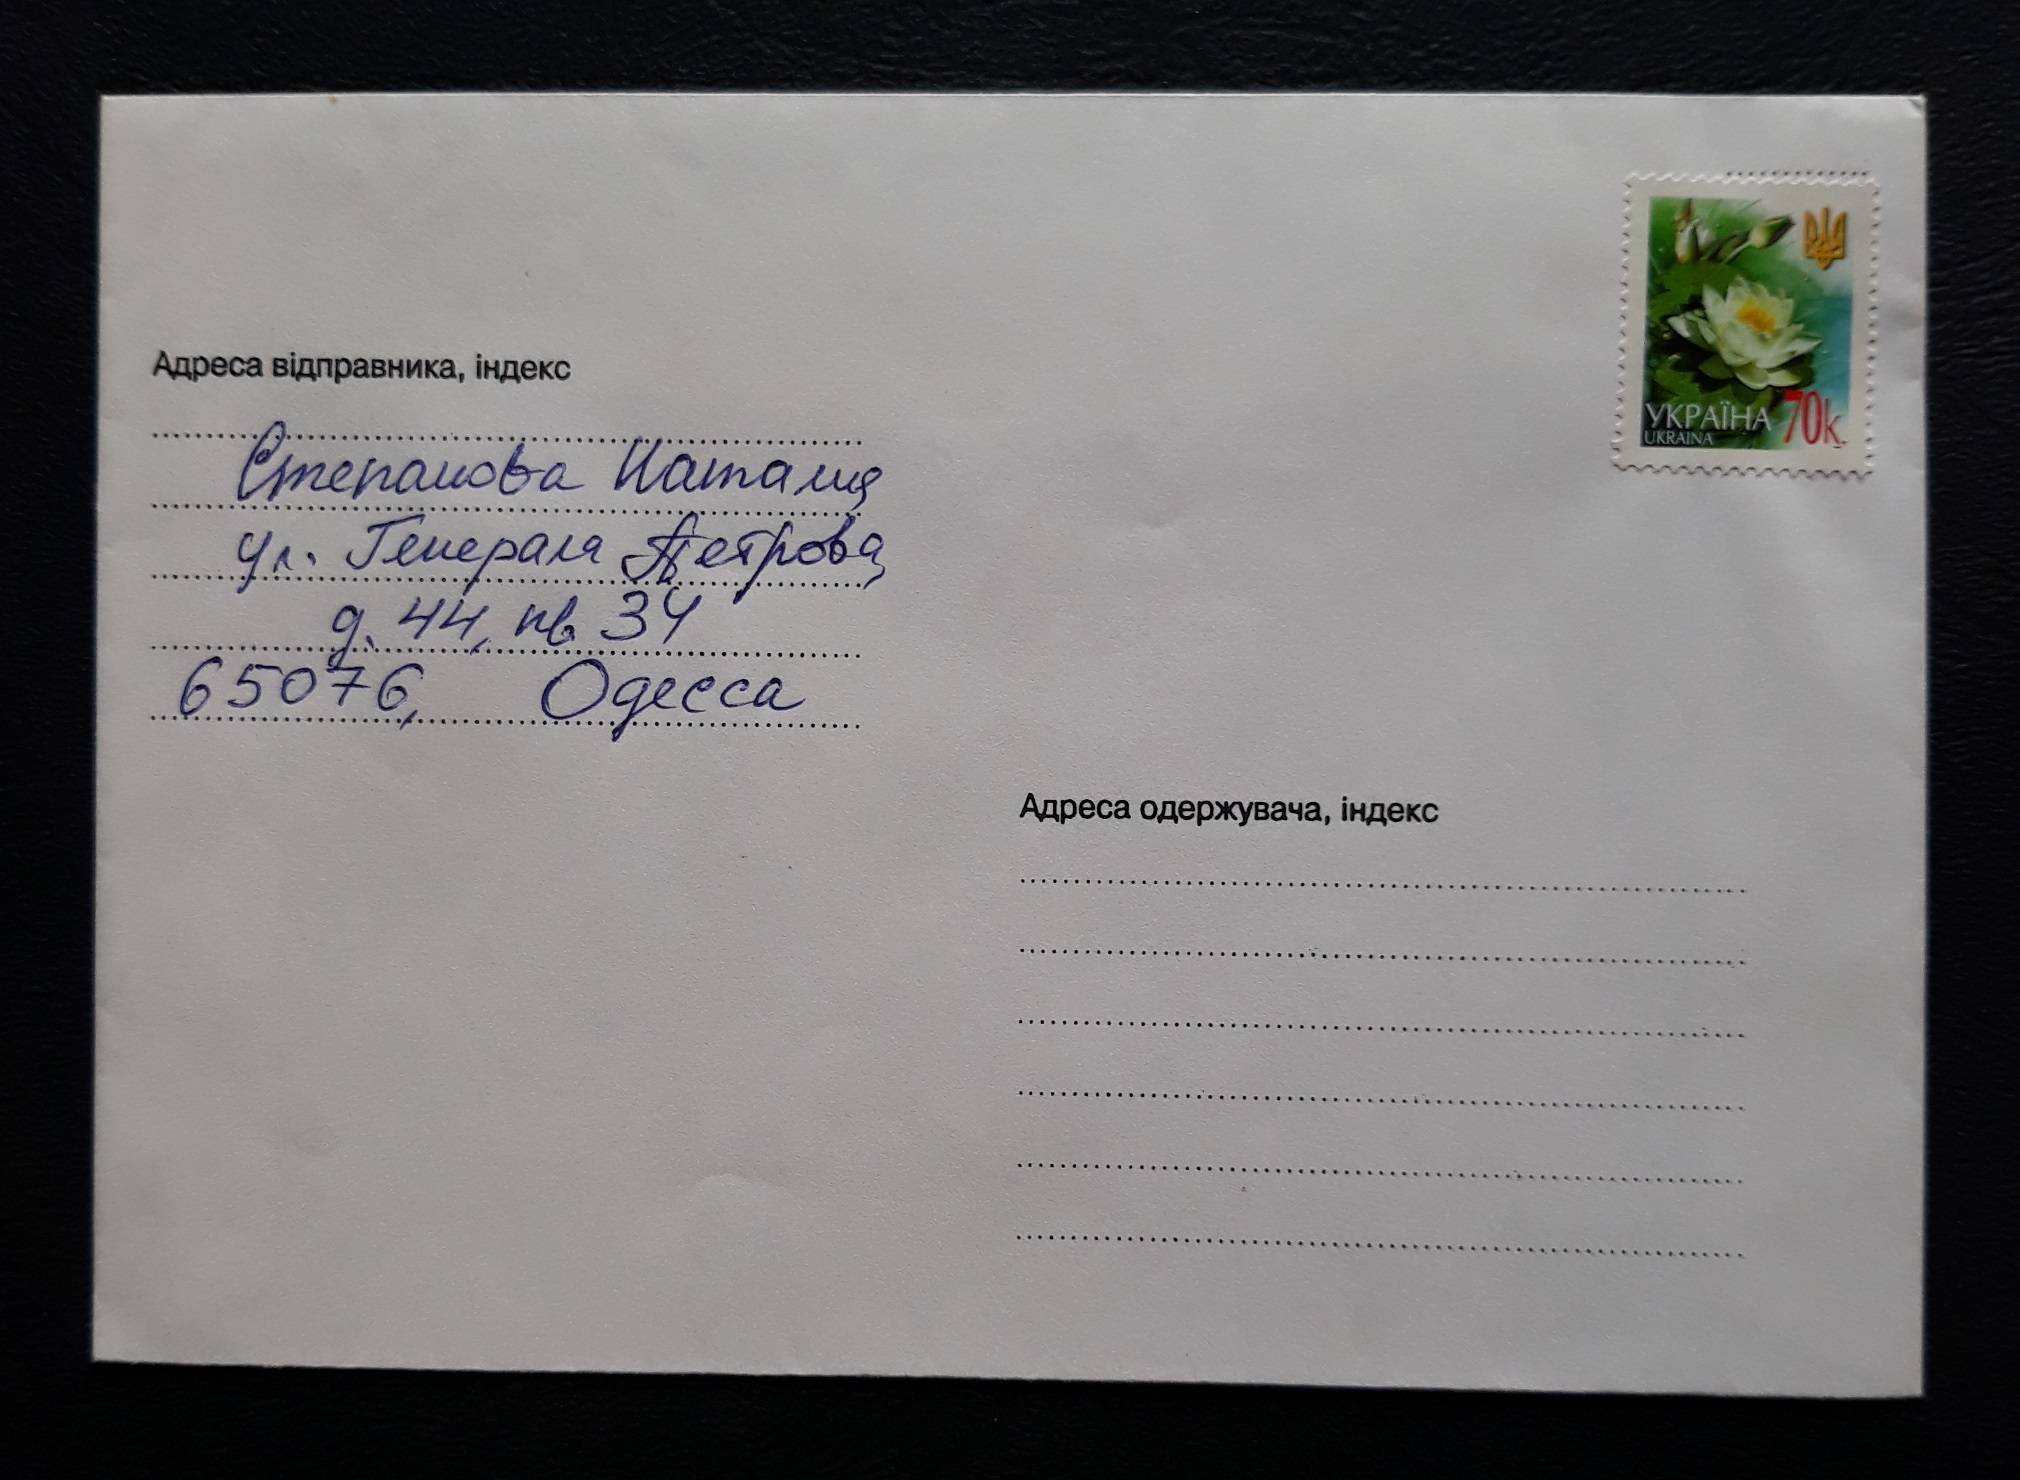 Адреса відправника, індекс
Степанова Наталия
ул. Генерала Петрова
д. 44, кв. 34
65076, Одесса
УКРАЇНА 70k.
UKRAINA
Адреса одержувача, індекс